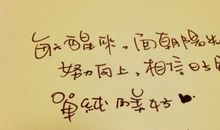 每天醒來，面朝陽光
努力向上，相信日子
單純的美好